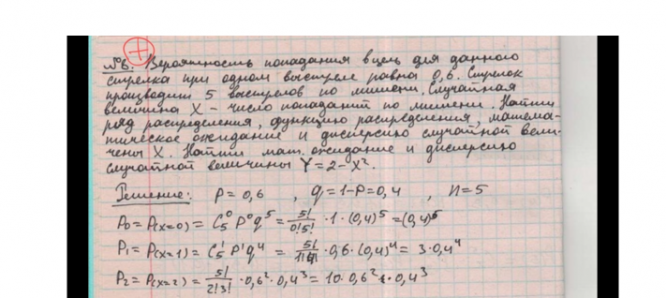 №6. Вероятность попадания в цель для данного
стрелка при одном выстреле равна 0,6. Стрелок
производит 5 выстрелов по мишени. Случайная
величина X – число попаданий по мишени. Найти
ряд распределения, функцию распределения, матема-
тическое ожидание и дисперсию случайной вели-
чены X. Найти мат. ожидание и дисперсию
случайной величины Y=2-X².
Решение: P=0,6 , q=1-P=0,4 , n=5
P₀=P(x=0)=C₅⁰P⁰q⁵=5!/0!5!·1·(0,4)⁵=(0,4)⁵
P₁=P(x=1)=C₅¹P¹q⁴=5!/1!4!·0,6·(0,4)⁴=3·0,4⁴
P₂=P(x=2)=5!/2!3!·0,6²·0,4³=10·0,6²·0,4³